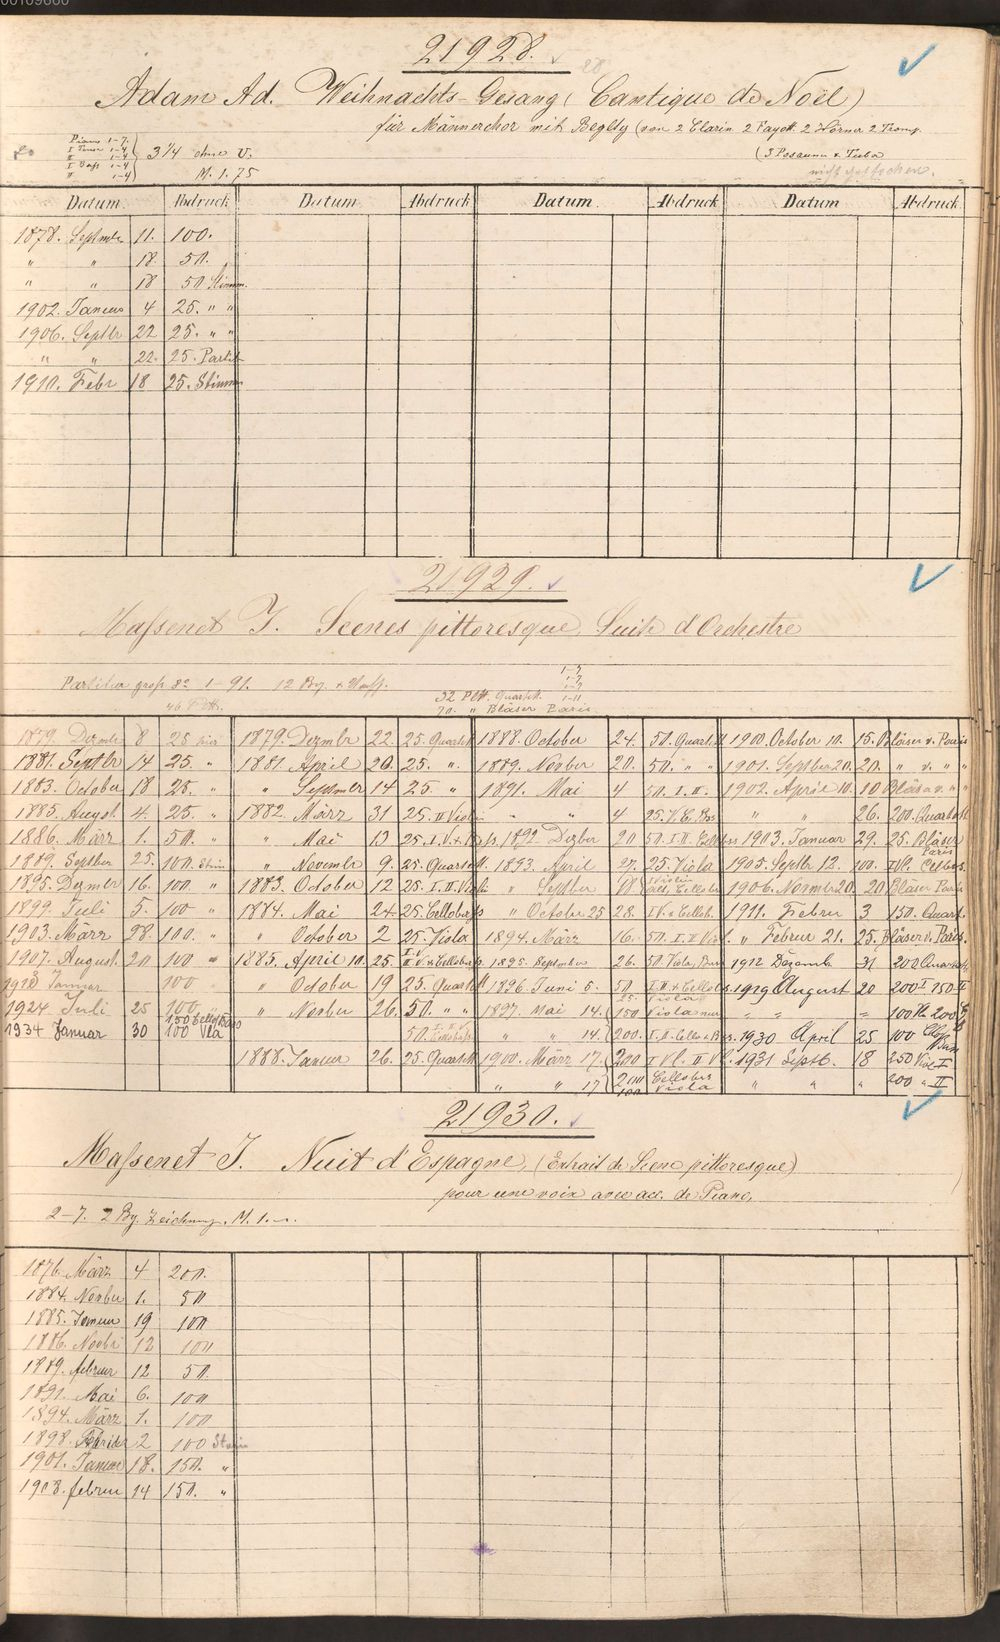 21928.
Adam Ad. Weihnachts-Gesang (Cantique de Noël)
für Männerchor mit Begltg (von 2 Clarin 2 Fagott. 2 Hörner 2 Tromp.
(3 Posaunen & Tuba
Piano 1-7.
I Tenor 1-4
II " 1-4
I Bass 1-4
II " 1-4
3 1/4 ohne V.
M. 1.75
nicht gestochen.
Datum. Abdruck Datum. Abdruck Datum. Abdruck Datum Abdruck
1878. Septmbr 11. 100.
" " 18. 50.
" " 18 50 Stimm.
1902. Januar 4 25. " "
1906. Septbr 22 25. " "
" " 22. 25. Partit
1910. Febr 18 25. Stimm
21929.
Massenet J. Scenes pittoresque, Suite d'Orchestre
Partitur gross 8° 1-91.
32 Pltt. Quartett.
70. " Bläser Paris
1879. Dezmbr 8 25 hier 1879. Dezmbr 22. 25. Quartett 1888. October 24. 50. Quartett 1900. October 10. 15. Bläser v. Paris
1881. Septbr 14 25. " 1881. April 26. 25. " 1889. Novber 20. 50. " " 1901. Septber 20. 20. " v. " "
1883. October 18 25. " " Septmer 14 25 " 1891. Mai 4 50. I. II. 1902. April 10. 10 Bläser v. " "
1885. August 4. 25. " 1882. März 31 25. II Violin " " 4 25. V. C. Bss " " 26. 200. Quartett
1886. März 1. 50. " " Mai 13 25. I. V. 1892 Dezber 20 50. I. II. 1903. Januar 29. 25. Bläser Paris
1889. Septber 25. 100. Stim " Novembr 9. 25. Quartett. 1893. April 27. 25. Viola 1905. Septbr 12. 100.
1895. Dezmbr 16. 100 " 1883. October 12 25. I. II. Violi " Septber 1906. Novmbr 20. 20 Bläser Paris
1899. Juli 5. 100 " 1884. Mai 24 25. Cellobass " October 25 28. 1911. Februar 3 150. Quart.
1903. März 28. 100. " " October 2 25. Viola 1894. März 16. 50. I. II Viol. " Februar 21. 25. Bläser v. Paris.
1907. August 20 100 " 1885. April 10. 25. 1895. September 26. 50. Viola, Bass 1912 Dezemb 31 200 Quartett
Januar 100 " October 19 25. Quartett 1896. Juni 5. 50 1919 August 20 200 I 150 II
1924 Juli 25 100 " Novber 26. 50. " " 1897. Mai 14. 150 Viola nur " " " 100 Vla 200
150 Cello Bass
1934 Januar 30 100 Vla 50. Cellobass " " 14. 200. 1930 April 25 100
1888. Januar 26. 25. Quartett 1900. März 17. 200 I Vl. II Vl. 1931 Septb. 18 250 Viol I
" " 17 200 Cellobss " " " 200 " II
100 Viola
21930.
Massenet J. Nuit d'Espagne, (Extrait de Scene pittoresque)
pour une voix avec acc. de Piano,
2-7. 2 Bg. Zeichnung. M. 1.
1876. März 4 200.
1884. Novber 1. 50
1885. Januar 19 100
1886. Novbr 12 100
1889. februar 12 50.
1891. Mai 6. 100
1894. März 1. 100
1898. 2 100 Stein
1901. Januar 18. 150. "
1908. februar 14 150. "